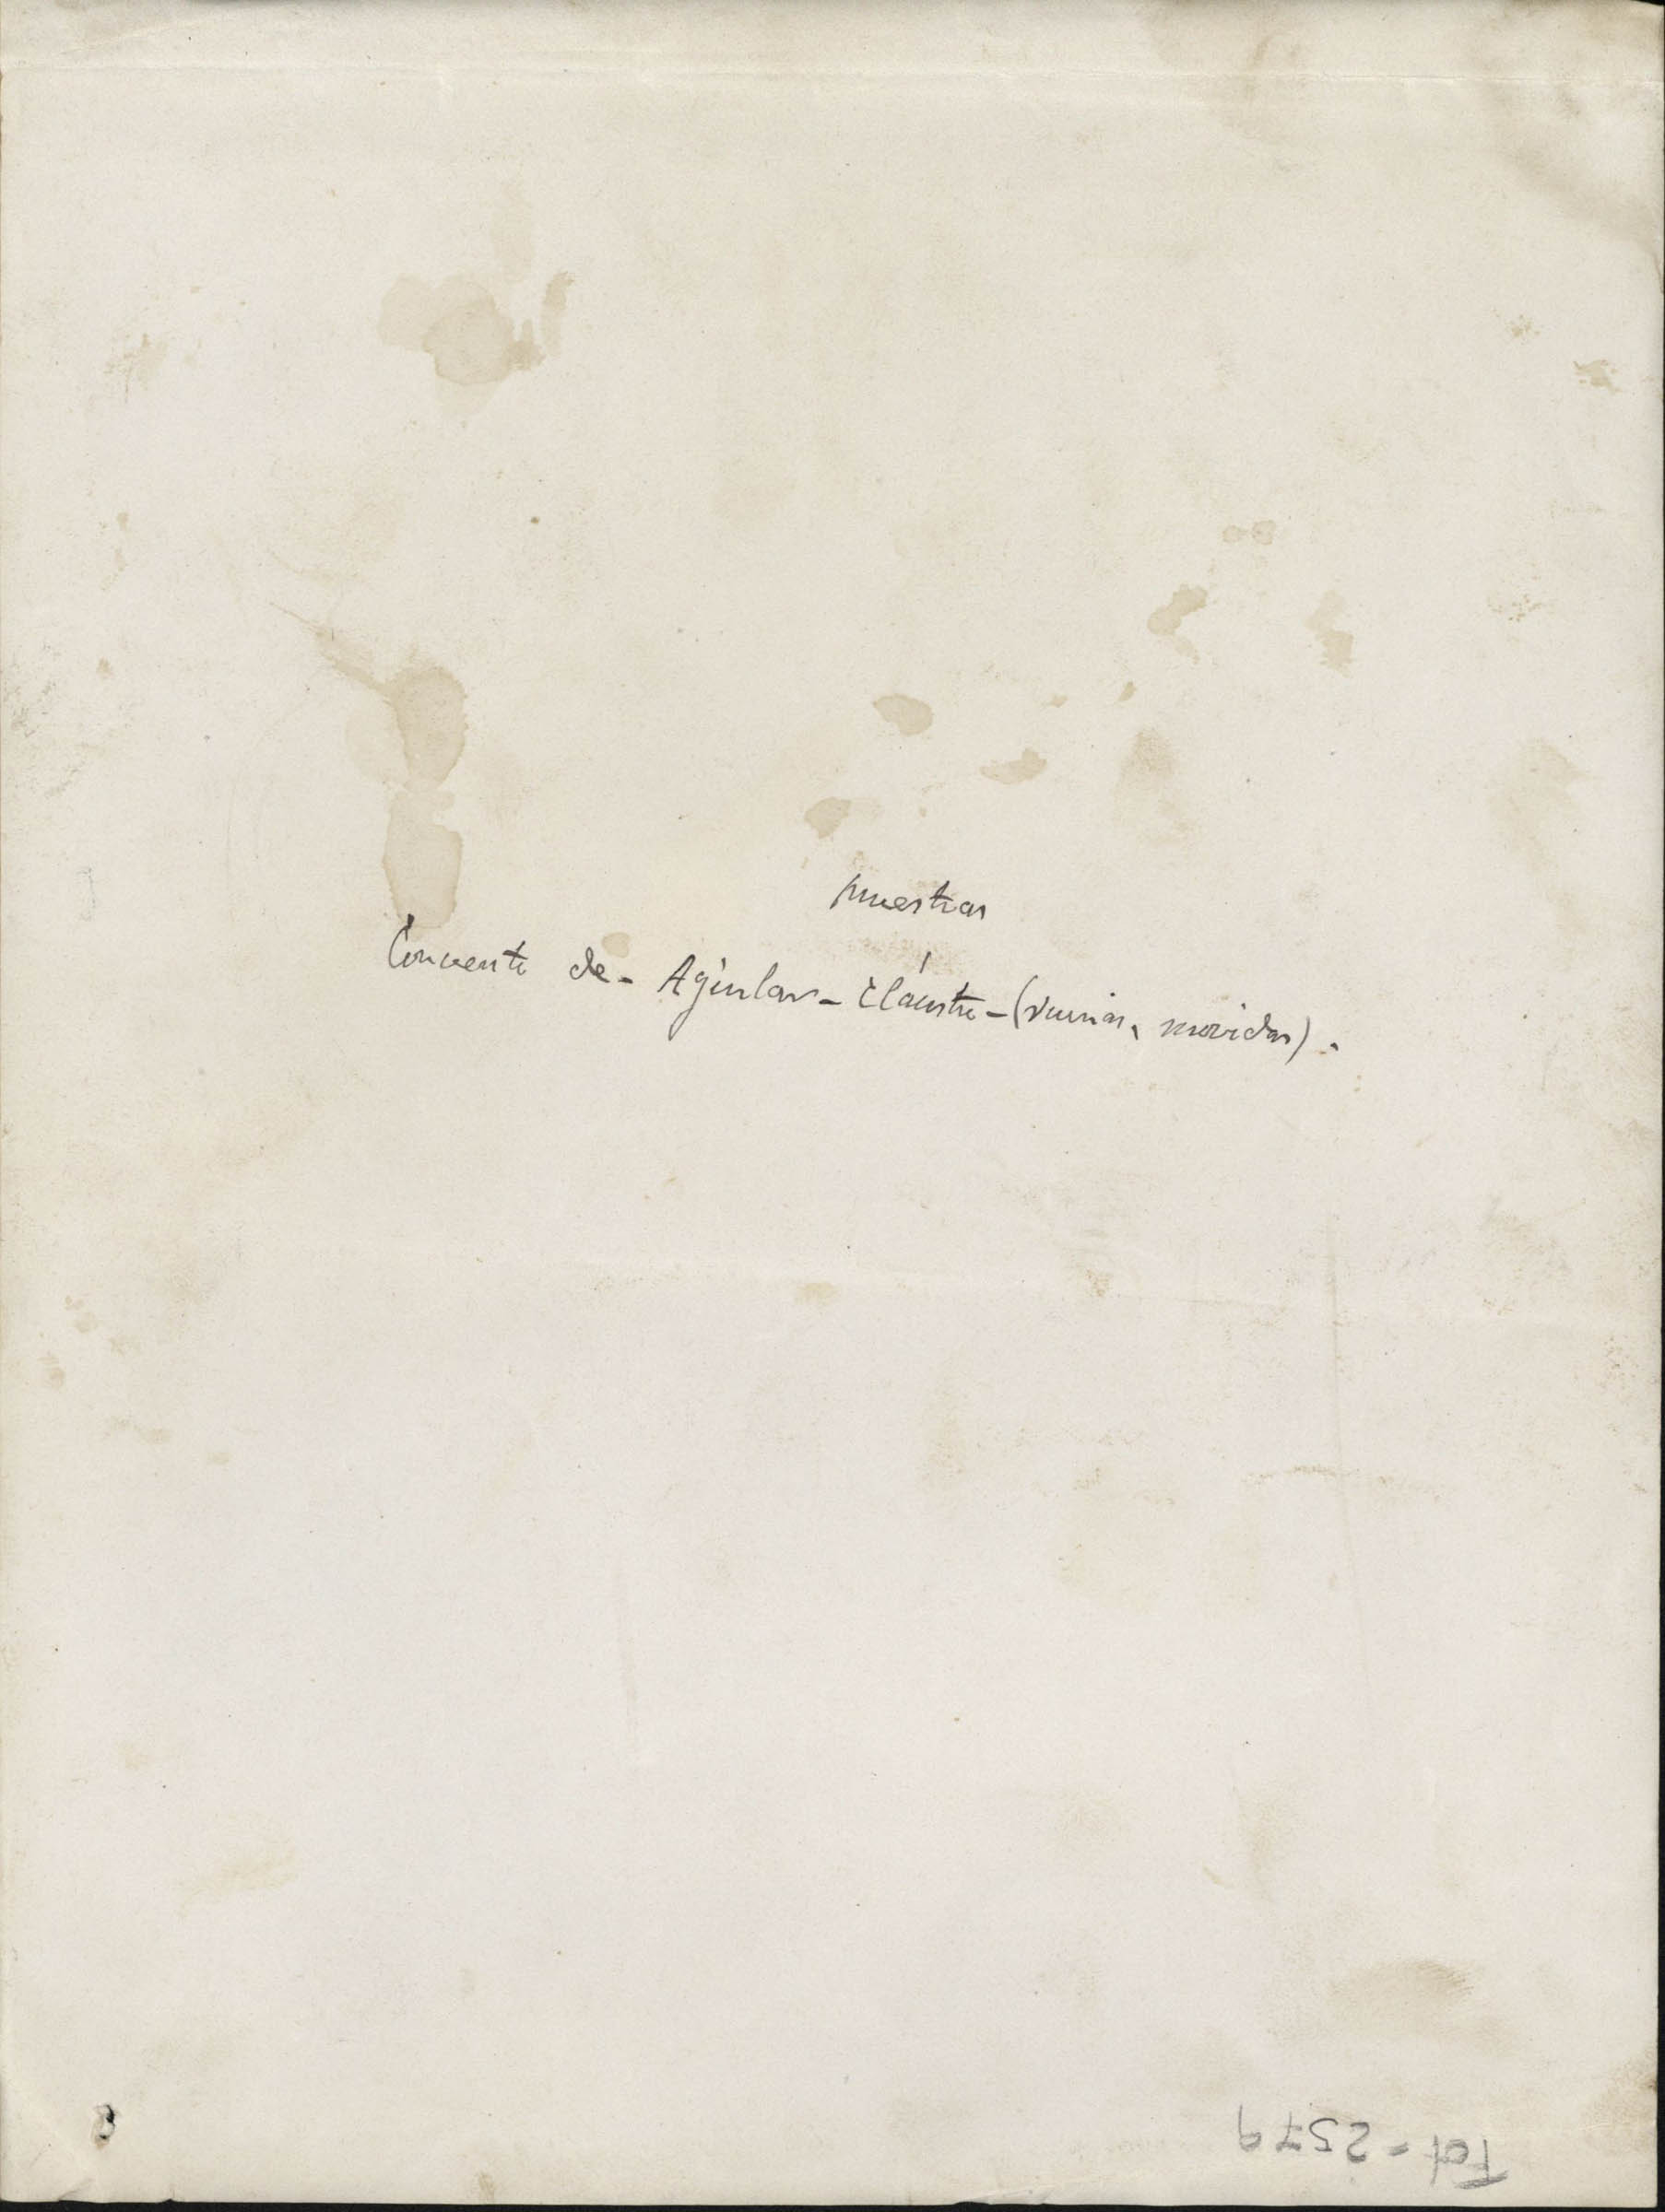 muestras
Convento de - Aguilar - Cláustro - (ruinas, movidas).
Fot - 2579